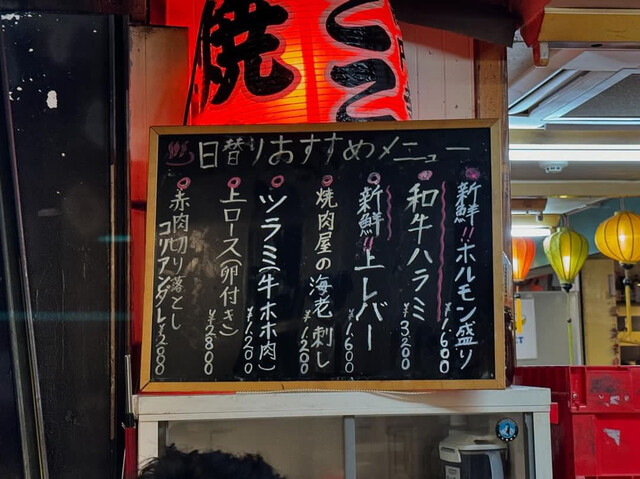 焼
日替りおすすめメニュー
新鮮!!ホルモン盛り ¥1,600
和牛ハラミ ¥3,200
新鮮!!上レバー ¥1,600
焼肉屋の海老刺し ¥1,200
ツラミ(牛ホホ肉) ¥1,200
上ロース(卵付き) ¥2,800
赤肉切り落とし
コリアンダレ ¥2,800